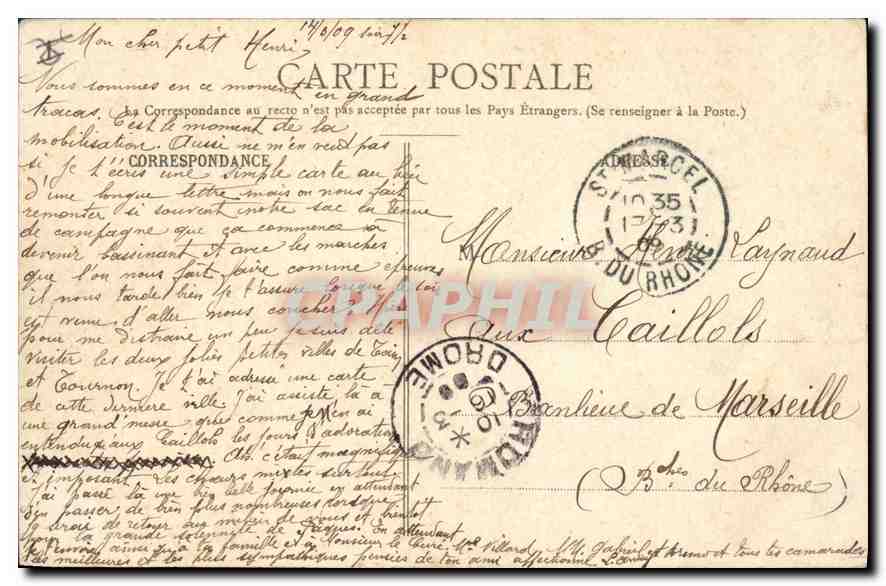 14/3/09 soir 7 1/2
Mon cher petit Henri
CARTE POSTALE
Nous sommes en ce moment en grand
tracas. C'est le moment de la
La Correspondance au recto n'est pas acceptée par tous les Pays Étrangers. (Se renseigner à la Poste.)
mobilisation. Aussi ne m'en veut pas
CORRESPONDANCE
ADRESSE
si je t'écris une simple carte au lieu
d'une longue lettre mais on nous fait
remonter si souvent notre sac en tenue
de campagne que ça commence a
devenir bassinant et avec les marches
que l'on nous fait faire comme épreuves
il nous tarde bien je t'assure lorsque le soir
est venu d'aller nous coucher. Mais
pour me distraire un peu je suis allé
visiter les deux jolies petites villes de Tain
et Tournon. Je t'ai adressé une carte
de cette dernière ville. J'ai assisté là à
une grand'messe que comme j'en ai
entendu aux Caillols les jours d'adoration
Ah c'était magnifique
et imposant. Les chœurs mixtes surtout
j'ai passé là une bien belle journée en attendant
d'en passer de bien plus nombreuses lorsque
je serai de retour au milieu de vous et bientôt
pour la grande solennité de Pâques. En attendant
amitiés à la famille et à Monsieur le Curé, Mr Villard, MM. Gabriel et et tous les camarades
les meilleures et les plus sympathiques pensées de ton ami affectionné
ST MARCEL
10 35
17 -3
09
B. DU RHONE
Monsieur Henri Laynaud
aux Caillols
Banlieue de Marseille
(Bches du Rhône)
ROMANS
DROME
CPAPHIL